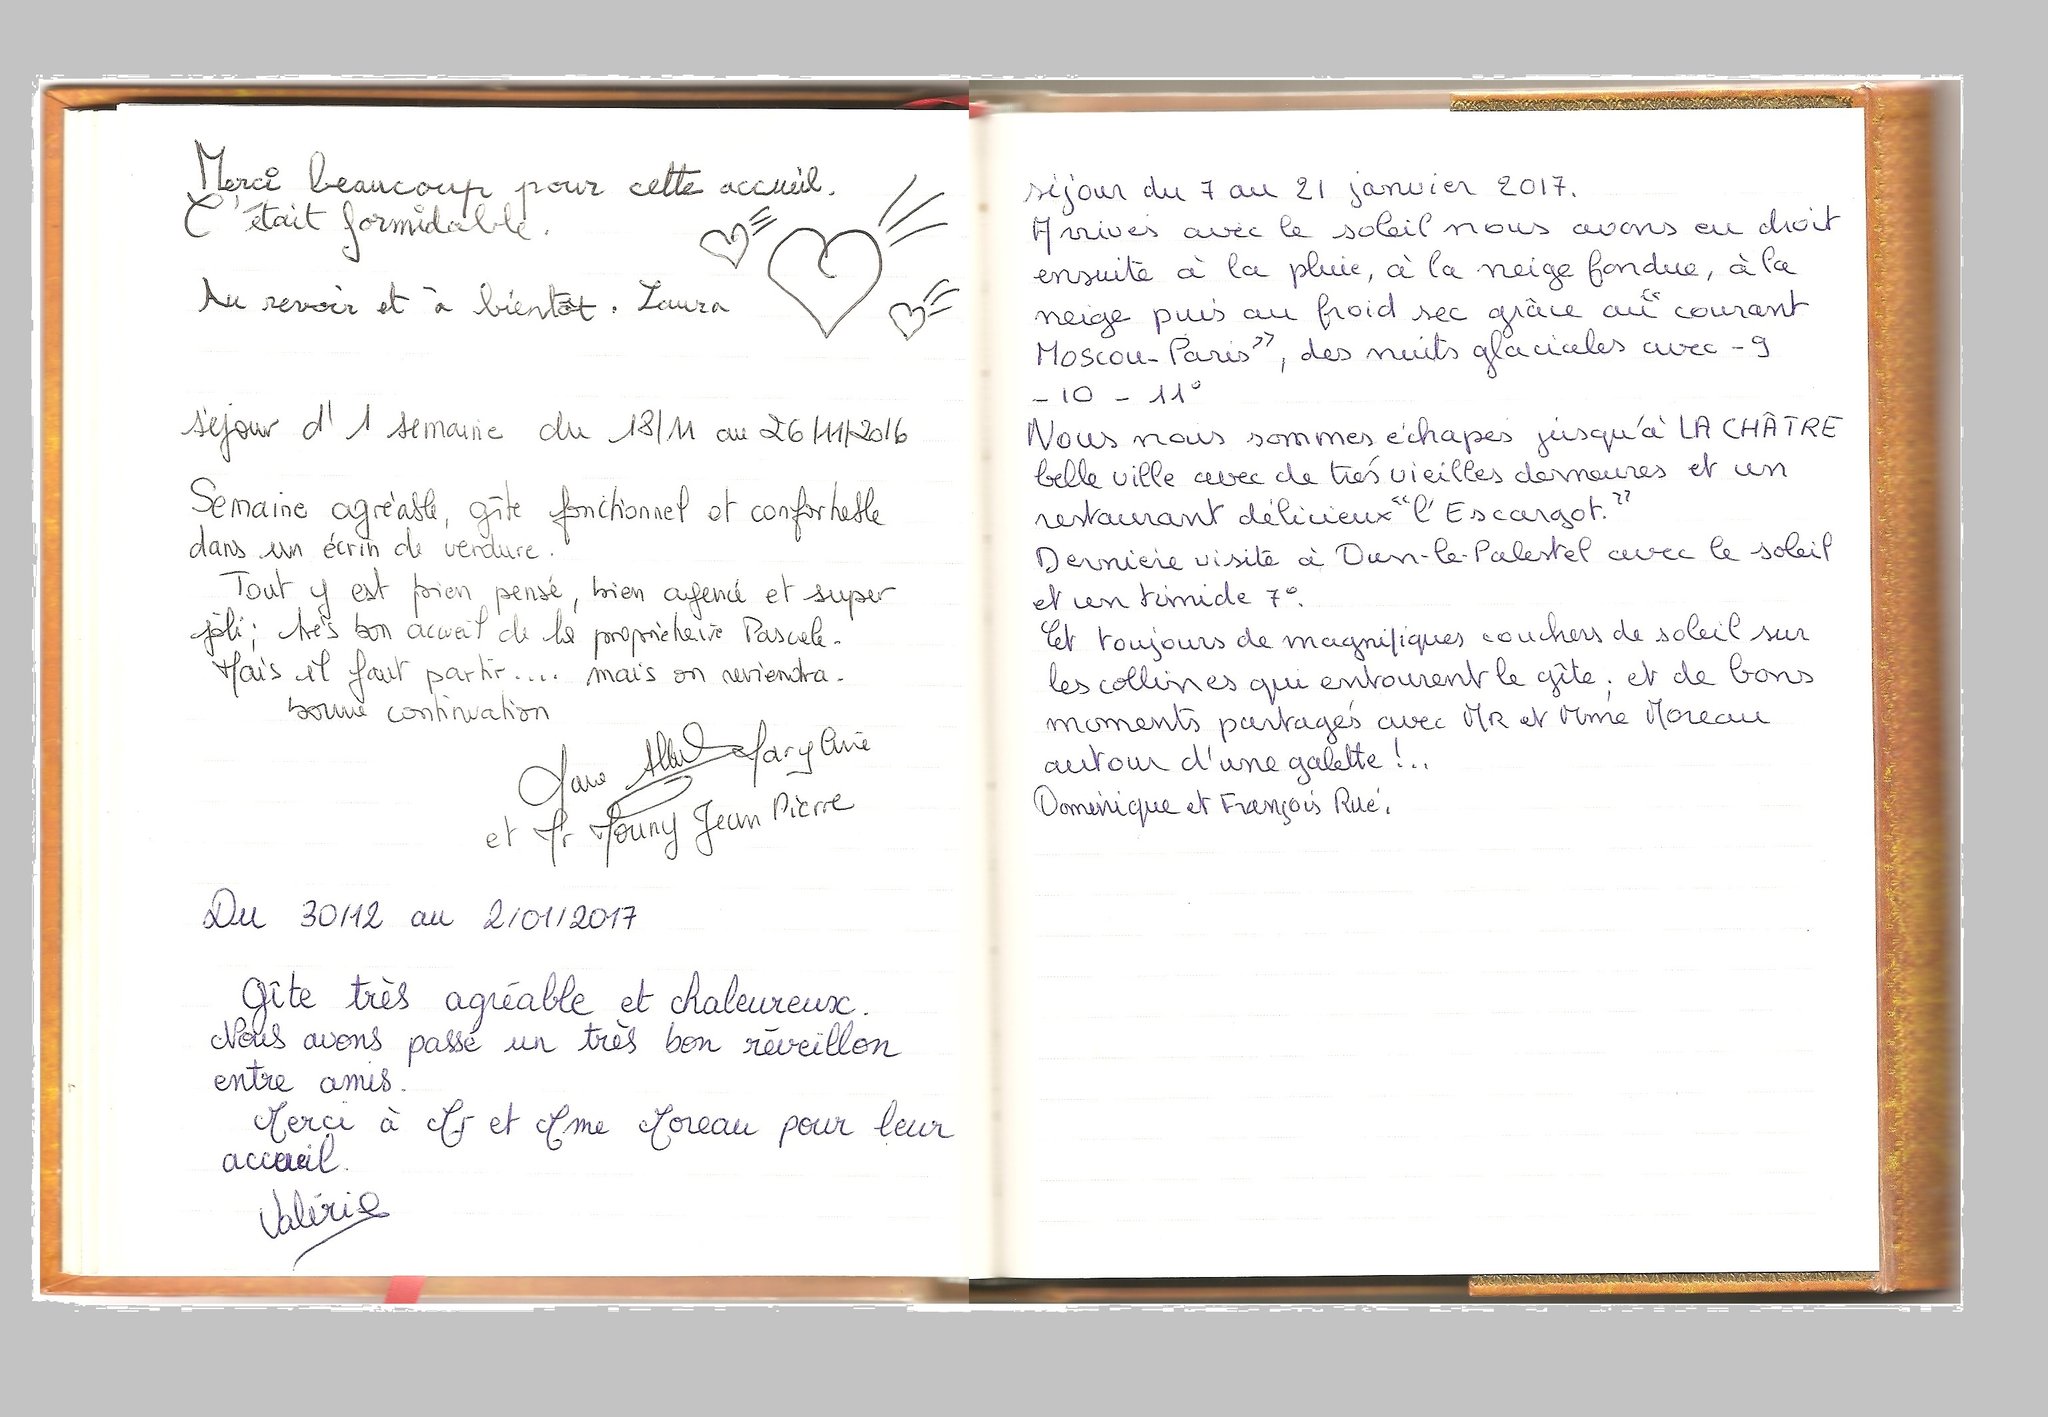 Merci beaucoup pour cette accueil.
C'était formidable.
Au revoir et à bientôt. Laura
séjour d'1 semaine du 18/11 au 26/11/2016
Semaine agréable, gîte fonctionnel et confortable
dans un écrin de verdure.
Tout y est bien pensé, bien agencé et super
joli; très bon accueil de la propriétaire Pascale.
Mais il faut partir.... mais on reviendra.
bonne continuation
Mary Anie
et Mr Mouny Jean Pierre
Du 30/12 au 2/01/2017
Gîte très agréable et chaleureux.
Nous avons passé un très bon réveillon
entre amis.
Merci à Mr et Mme Moreau pour leur
accueil.
Valérie
séjour du 7 au 21 janvier 2017.
Arrivés avec le soleil nous avons eu droit
ensuite à la pluie, à la neige fondue, à la
neige puis au froid sec grâce au "courant
Moscou-Paris", des nuits glaciales avec -9
-10 -11°
Nous nous sommes échapés jusqu'à LA CHÂTRE
belle ville avec de très vieilles demeures et un
restaurant délicieux "l'Escargot."
Dernière visite à Dun-le-Palestel avec le soleil
et un timide 7°.
Et toujours de magnifiques couchers de soleil sur
les collines qui entourent le gîte; et de bons
moments partagés avec MR et Mme Moreau
autour d'une galette !..
Dominique et François Rué.